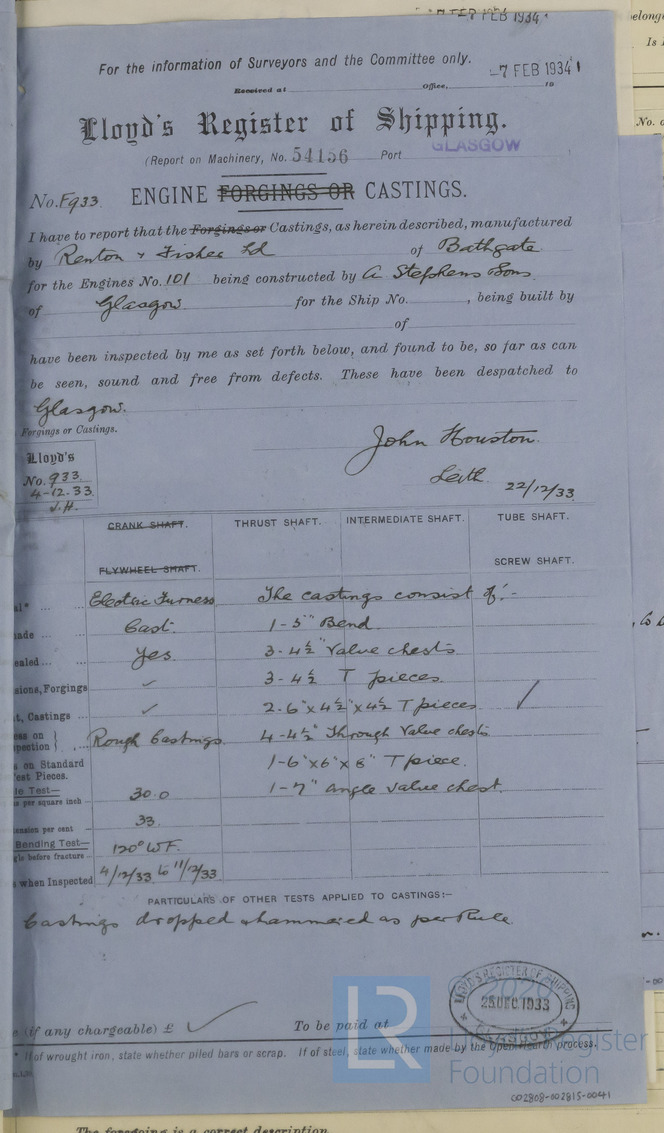 FEB 1934
For the information of Surveyors and the Committee only.
-7 FEB 1934
Received at Office, 19
Lloyd's Register of Shipping.
(Report on Machinery, No. 54156 Port GLASGOW
No. F933 ENGINE FORGINGS OR CASTINGS.
I have to report that the Forgings or Castings, as herein described, manufactured
by Renton & Fisher Ld of Bathgate
for the Engines No. 101 being constructed by A Stephens Sons
of Glasgow for the Ship No. , being built by
of
have been inspected by me as set forth below, and found to be, so far as can
be seen, sound and free from defects. These have been despatched to
Glasgow.
Forgings or Castings.
John Houston.
Leith 22/12/33
Lloyd's
No. 933
4-12.33
J.H.
CRANK SHAFT. THRUST SHAFT. INTERMEDIATE SHAFT. TUBE SHAFT.
FLYWHEEL SHAFT. SCREW SHAFT.
Electric Furness The castings consist of:-
Cast. 1-5" Bend
ealed Yes 3-4½" Valve chests
sions, Forgings ✓ 3-4½ T pieces
t, Castings ✓ 2-6"x4½"x4½ T pieces ✓
ess on
pection Rough Castings 4-4½" Through Valve chests
s on Standard
Test Pieces. 1-6"x6"x6" T piece.
le Test—
s per square inch 30.0 1-7" angle valve chest.
ension per cent 33.
Bending Test—
gle before fracture 120° WF.
s when Inspected 4/12/33 to 11/12/33
PARTICULARS OF OTHER TESTS APPLIED TO CASTINGS:—
Castings dropped & hammered as per Rule.
LLOYD'S REGISTER OF SHIPPING
28 DEC 1933
GLASGOW
(if any chargeable) £ ✓ To be paid at
* If of wrought iron, state whether piled bars or scrap. If of steel, state whether made by the Open Hearth process.
LR
© 2020
Lloyd's Register
Foundation
002808-002815-0041
The foregoing is a correct description